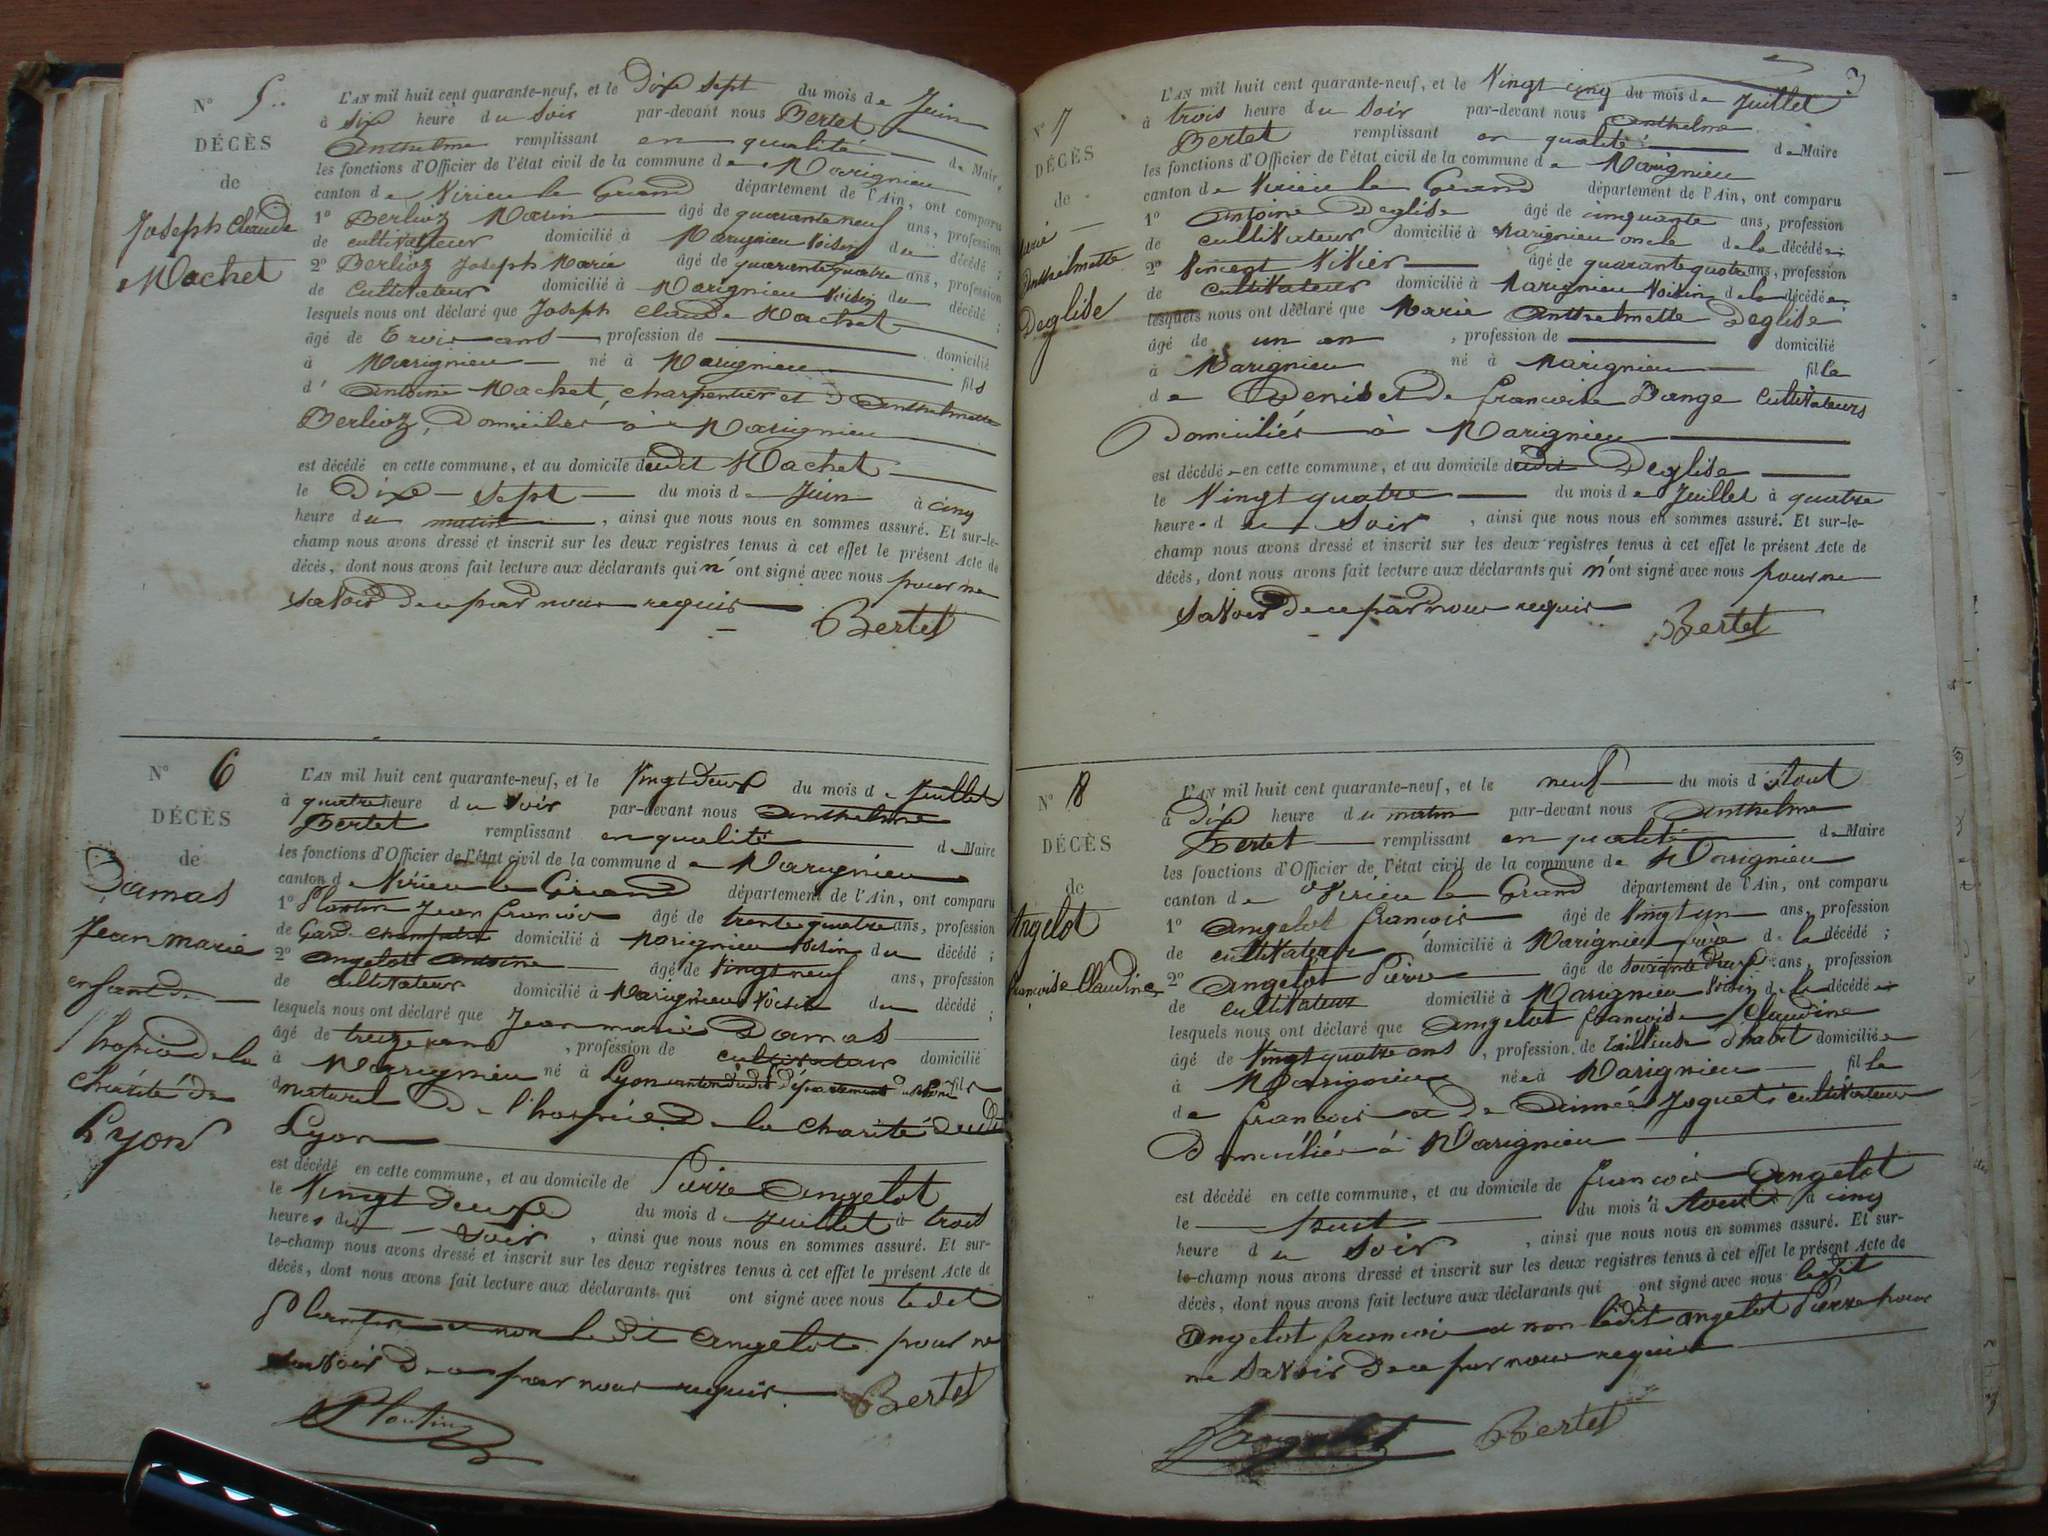 N° 5
DÉCÈS
de
Joseph Claude
Machet
L'AN mil huit cent quarante-neuf, et le Dix sept du mois de Juin
à six heure du Soir par-devant nous Bertet
Anthelme remplissant en qualité de Maire
les fonctions d'Officier de l'état civil de la commune de Marignieu
canton de Virieu le Grand département de l'Ain, ont comparu
1° Berlioz Marin âgé de quarante neuf ans, profession
de cultivateur domicilié à Marignieu voisin du décédé ;
2° Berlioz Joseph Marie âgé de quarante quatre ans, profession
de Cultivateur domicilié à Marignieu voisin du décédé ;
lesquels nous ont déclaré que Joseph Claude Machet
âgé de Trois ans profession de domicilié
à Marignieu né à Marignieu fils
d' Antoine Machet, charpentier et D Anthelmette
Berlioz, Domiciliés à Marignieu
est décédé en cette commune, et au domicile dudit Machet
le Dix-Sept du mois de Juin à cinq
heure du matin, ainsi que nous nous en sommes assuré. Et sur-le-
champ nous avons dressé et inscrit sur les deux registres tenus à cet effet le présent Acte de
décès, dont nous avons fait lecture aux déclarants qui n'ont signé avec nous pour ne
savoir de ce par nous requis
Bertet
N° 6
DÉCÈS
de
Damas
Jean marie
enfant de
l'hospice de la
charité de
Lyon
L'AN mil huit cent quarante-neuf, et le Vingt deux du mois de Juillet
à quatre heure du soir par-devant nous Anthelme
Bertet remplissant en qualité de Maire
les fonctions d'Officier de l'état civil de la commune de Marignieu
canton de Virieu le Grand département de l'Ain, ont comparu
1° Plantin Jean françois âgé de trente quatre ans, profession
de Gard-champetre domicilié à Marignieu voisin du décédé ;
2° Angelot Antoine âgé de Vingt neuf ans, profession
de cultivateur domicilié à Marignieu Voisin du décédé ;
lesquels nous ont déclaré que Jean marie Damas
âgé de treize ans, profession de cultivateur domicilié
à Marignieu né à Lyon canton dudit département du Rhône fils
naturel De l'hospice de la charité dudit
Lyon
est décédé en cette commune, et au domicile de Pierre Angelot
le Vingt deux du mois de Juillet à trois
heures du soir, ainsi que nous nous en sommes assuré. Et sur-
le-champ nous avons dressé et inscrit sur les deux registres tenus à cet effet le présent Acte de
décès, dont nous avons fait lecture aux déclarants qui ont signé avec nous ledit
Plantin et non ledit Angelot pour ne
savoir de ce par nous requis
Bertet
Plantin
3
N° 7
DÉCÈS
de
Marie
Anthelmette
Deglise
L'AN mil huit cent quarante-neuf, et le Vingt cinq du mois de Juillet
à trois heure du Soir par-devant nous Anthelme
Bertet remplissant en qualité de Maire
les fonctions d'Officier de l'état civil de la commune de Marignieu
canton de Virieu le Grand département de l'Ain, ont comparu
1° Antoine Deglise âgé de cinquante ans, profession
de cultivateur domicilié à Marignieu oncle de la décédée
2° Vincent Vivier âgé de quarante quatre ans, profession
de cultivateur domicilié à Marignieu Voisin de la décédée
lesquels nous ont déclaré que Marie Anthelmette Deglise
âgé de un an, profession de domicilié
à Marignieu né à Marignieu fille
de Denis et De francoise Dange Cultivateurs
Domiciliés à Marignieu
est décédé en cette commune, et au domicile dudit Deglise
le Vingt quatre du mois de Juillet à quatre
heure du Soir, ainsi que nous nous en sommes assuré. Et sur-le-
champ nous avons dressé et inscrit sur les deux registres tenus à cet effet le présent Acte de
décès, dont nous avons fait lecture aux déclarants qui n'ont signé avec nous pour ne
savoir de ce par nous requis
Bertet
N° 8
DÉCÈS
de
Angelot
françoise Claudine
L'AN mil huit cent quarante-neuf, et le neuf du mois d'Aout
à Dix heure du matin par-devant nous Anthelme
Bertet remplissant en qualité de Maire
les fonctions d'Officier de l'état civil de la commune de Marignieu
canton de Virieu le Grand département de l'Ain, ont comparu
1° Angelot françois âgé de Vingt un ans, profession
de cultivateur domicilié à Marignieu frère de la décédé ;
2° Angelot Pierre âgé de soixante deux ans, profession
de cultivateur domicilié à Marignieu Voisin de la décédée
lesquels nous ont déclaré que Angelot françoise Claudine
âgé de Vingt quatre ans, profession de tailleuse d'habit domiciliée
à Marignieu née à Marignieu fille
de francois et de Aimée Joguet cultivateurs
Domiciliés à Marignieu
est décédé en cette commune, et au domicile de francois Angelot
le huit du mois d'Aout à cinq
heure du Soir, ainsi que nous nous en sommes assuré. Et sur-
le-champ nous avons dressé et inscrit sur les deux registres tenus à cet effet le présent Acte de
décès, dont nous avons fait lecture aux déclarants qui ont signé avec nous ledit
Angelot francois et non ledit Angelot Pierre pour
ne savoir de ce par nous requis
Angelot Bertet